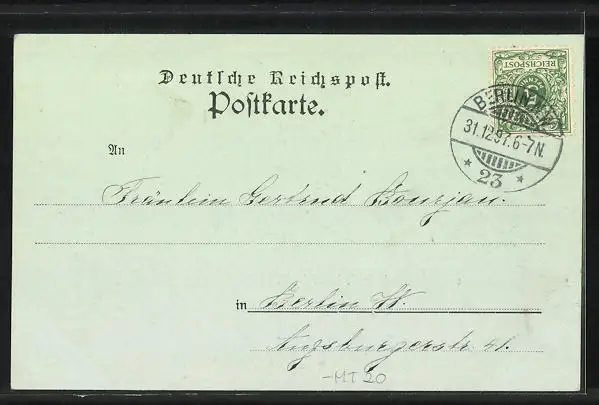 Deutsche Reichspost.
Postkarte.
REICHSPOST
BERLIN W.
31.12.97.6-7N.
* 23 *
An
Fräulein Gertrud Bourjau.
in Berlin W.
Augsburgerstr. 41.
-MT 20